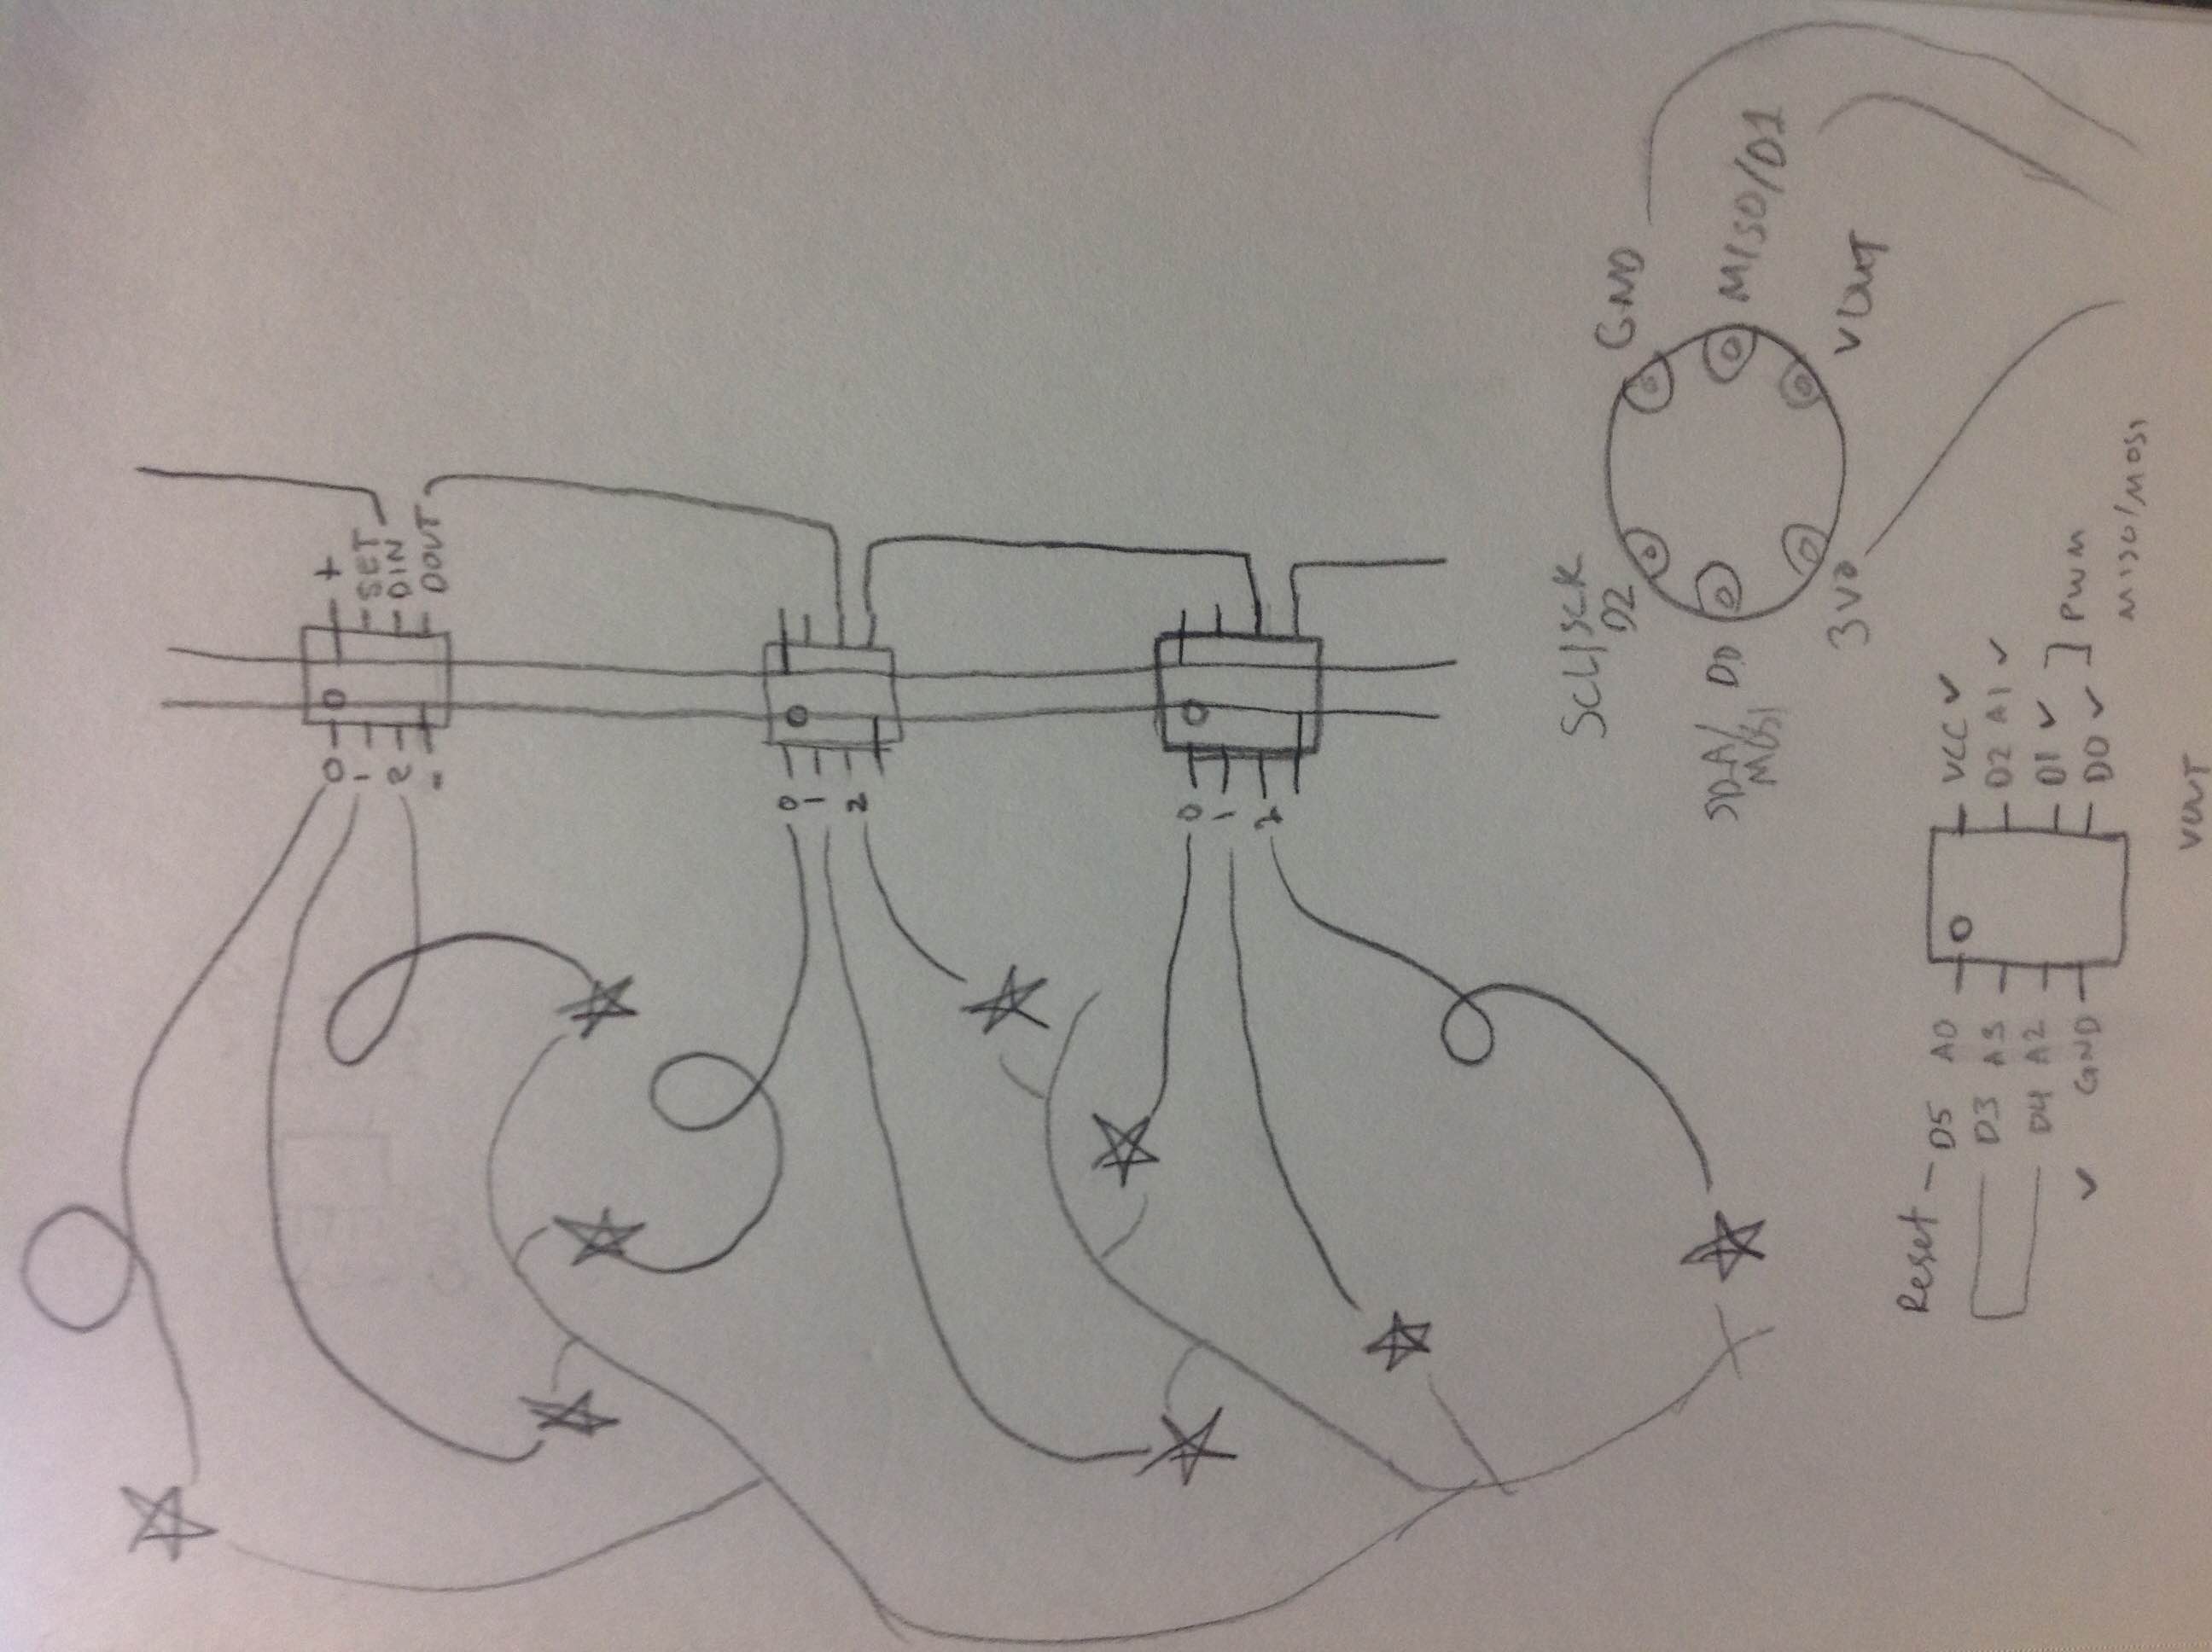 0
+
1
SET
2
DIN
-
DOUT
0
1
2
0
1
2
SCL/SCK
D2
GND
SDA/
MOSI
D0
MISO/D1
3Vo
VOUT
Reset - D5 A0
VCC ✓
D3 A3
D2 A1 ✓
D4 A2
D1 ✓
✓ GND
D0 ✓
PWM
MISO/MOSI
VOUT